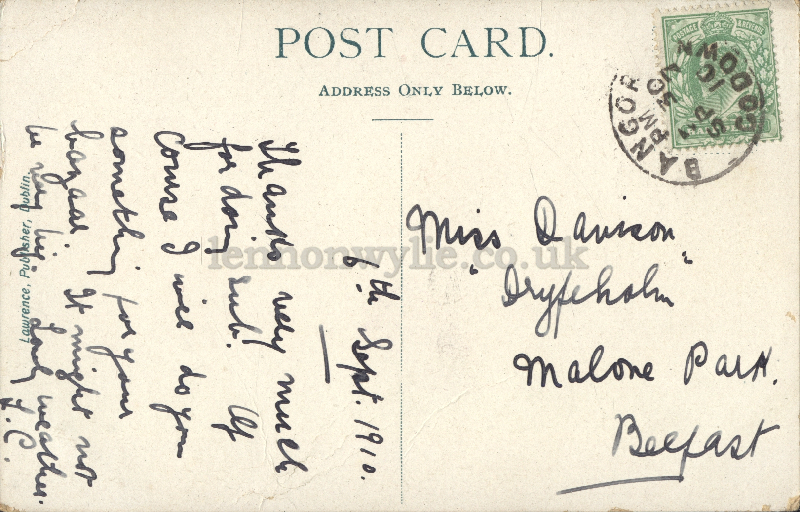 POST CARD.
ADDRESS ONLY BELOW.
BANGOR
CO DOWN
PM
SP
10
POSTAGE & REVENUE
6th Sept. 1910.
Thanks very much
for doing sub! Of
Course I will do you
something for your
bazaar. It might not
be very big. Lovely weather.
Lawrence, Publisher, Dublin.
Miss Davison
"Dryfeholm"
Malone Park.
Belfast
lennonwylie.co.uk